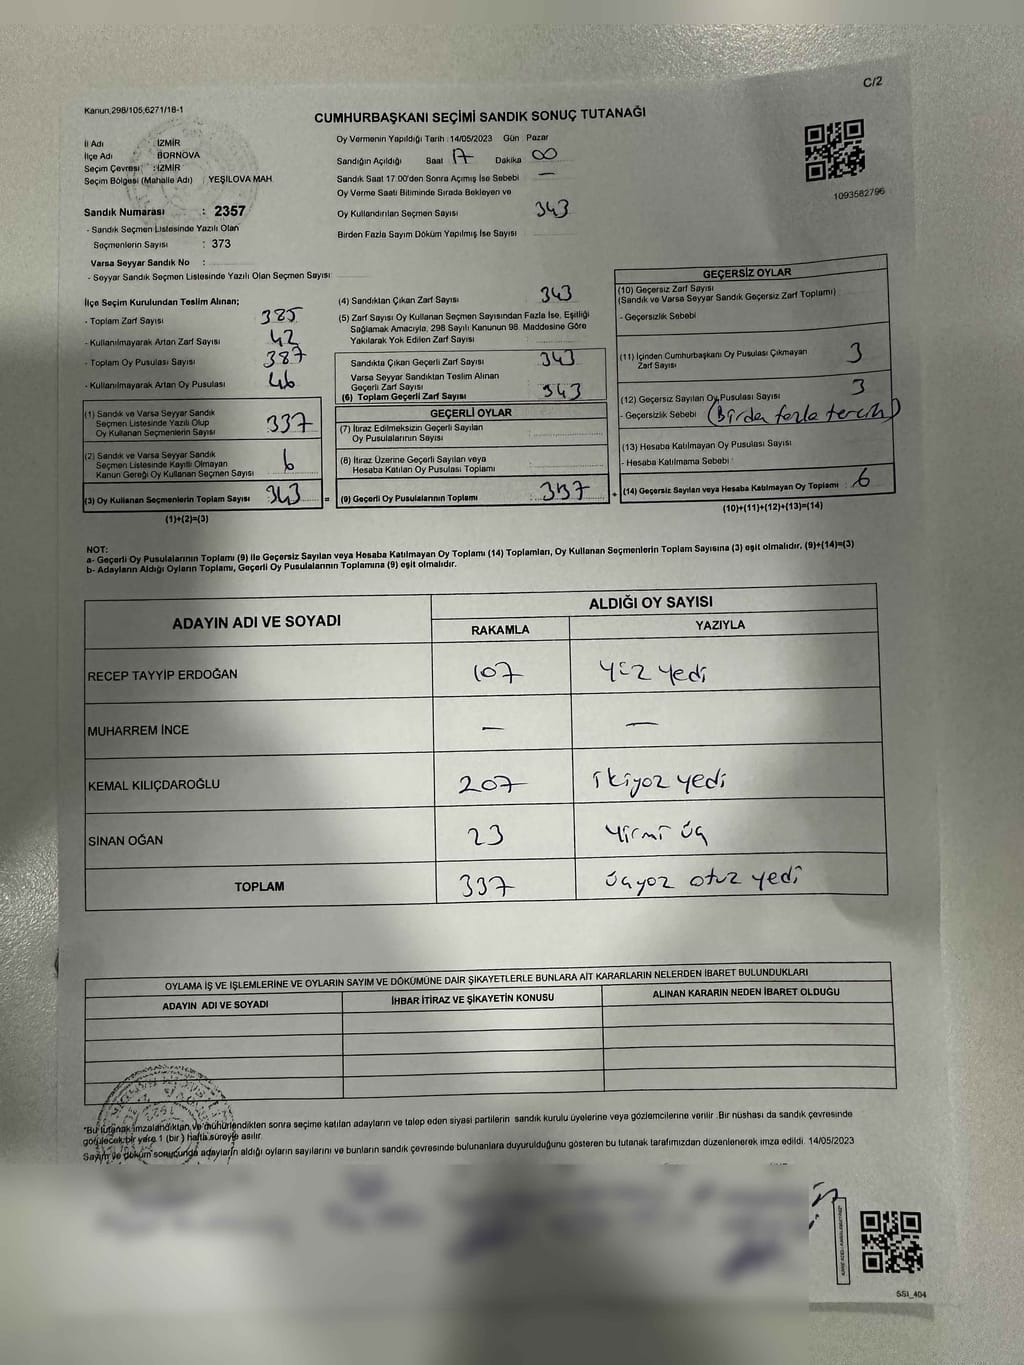 C/2
Kanun.298/105;6271/18-1
CUMHURBAŞKANI SEÇİMİ SANDIK SONUÇ TUTANAĞI
İl Adı : İZMİR
İlçe Adı : BORNOVA
Seçim Çevresi : İZMİR
Seçim Bölgesi (Mahalle Adı) : YEŞİLOVA MAH.
Sandık Numarası : 2357
- Sandık Seçmen Listesinde Yazılı Olan
Seçmenlerin Sayısı : 373
Varsa Seyyar Sandık No :
- Seyyar Sandık Seçmen Listesinde Yazılı Olan Seçmen Sayısı
Oy Vermenin Yapıldığı Tarih : 14/05/2023 Gün : Pazar
Sandığın Açıldığı Saat 17 Dakika 00
Sandık Saat 17.00'den Sonra Açımış İse Sebebi —
Oy Verme Saati Bitiminde Sırada Bekleyen ve
Oy Kullandırılan Seçmen Sayısı 343
Birden Fazla Sayım Döküm Yapılmış İse Sayısı
1093582796
İlçe Seçim Kurulundan Teslim Alınan;
- Toplam Zarf Sayısı 385
- Kullanılmayarak Artan Zarf Sayısı 42
- Toplam Oy Pusulası Sayısı 387
- Kullanılmayarak Artan Oy Pusulası 46
(1) Sandık ve Varsa Seyyar Sandık
Seçmen Listesinde Yazılı Olup
Oy Kullanan Seçmenlerin Sayısı 337
(2) Sandık ve Varsa Seyyar Sandık
Seçmen Listesinde Kayıtlı Olmayan
Kanun Gereği Oy Kullanan Seçmen Sayısı 6
(3) Oy Kullanan Seçmenlerin Toplam Sayısı 343 =
(1)+(2)=(3)
(4) Sandıktan Çıkan Zarf Sayısı 343
(5) Zarf Sayısı Oy Kullanan Seçmen Sayısından Fazla İse, Eşitliği
Sağlamak Amacıyla, 298 Sayılı Kanunun 98. Maddesine Göre
Yakılarak Yok Edilen Zarf Sayısı
Sandıkta Çıkan Geçerli Zarf Sayısı 343
Varsa Seyyar Sandıktan Teslim Alınan
Geçerli Zarf Sayısı
(6) Toplam Geçerli Zarf Sayısı 343
GEÇERLİ OYLAR
(7) İtiraz Edilmeksizin Geçerli Sayılan
Oy Pusulalarının Sayısı
(8) İtiraz Üzerine Geçerli Sayılan veya
Hesaba Katılan Oy Pusulası Toplamı
(9) Geçerli Oy Pusulalarının Toplamı 337 +
GEÇERSİZ OYLAR
(10) Geçersiz Zarf Sayısı
(Sandık ve Varsa Seyyar Sandık Geçersiz Zarf Toplamı)
- Geçersizlik Sebebi
(11) İçinden Cumhurbaşkanı Oy Pusulası Çıkmayan 3
Zarf Sayısı
(12) Geçersiz Sayılan Oy Pusulası Sayısı 3
- Geçersizlik Sebebi (Birden fazla tercih)
(13) Hesaba Katılmayan Oy Pusulası Sayısı
- Hesaba Katılmama Sebebi
(14) Geçersiz Sayılan veya Hesaba Katılmayan Oy Toplamı : 6
(10)+(11)+(12)+(13)=(14)
NOT:
a- Geçerli Oy Pusulalarının Toplamı (9) ile Geçersiz Sayılan veya Hesaba Katılmayan Oy Toplamı (14) Toplamları, Oy Kullanan Seçmenlerin Toplam Sayısına (3) eşit olmalıdır. (9)+(14)=(3)
b- Adayların Aldığı Oyların Toplamı, Geçerli Oy Pusulalarının Toplamına (9) eşit olmalıdır.
ADAYIN ADI VE SOYADI
ALDIĞI OY SAYISI
RAKAMLA YAZIYLA
RECEP TAYYİP ERDOĞAN 107 yüz yedi
MUHARREM İNCE — —
KEMAL KILIÇDAROĞLU 207 ikiyüz yedi
SİNAN OĞAN 23 yirmi üç
TOPLAM 337 üçyüz otuz yedi
OYLAMA İŞ VE İŞLEMLERİNE VE OYLARIN SAYIM VE DÖKÜMÜNE DAİR ŞİKAYETLERLE BUNLARA AİT KARARLARIN NELERDEN İBARET BULUNDUKLARI
ADAYIN ADI VE SOYADI İHBAR İTİRAZ VE ŞİKAYETİN KONUSU ALINAN KARARIN NEDEN İBARET OLDUĞU
*Bu tutanak imzalandıktan ve mühürlendikten sonra seçime katılan adayların ve talep eden siyasi partilerin sandık kurulu üyelerine veya gözlemcilerine verilir. Bir nüshası da sandık çevresinde
görülecek bir yere 1 (bir) hafta süreyle asılır.
Sayım ve döküm sonucunda adayların aldığı oyların sayılarını ve bunların sandık çevresinde bulunanlara duyurulduğunu gösteren bu tutanak tarafımızdan düzenlenerek imza edildi. 14/05/2023
SSI_404